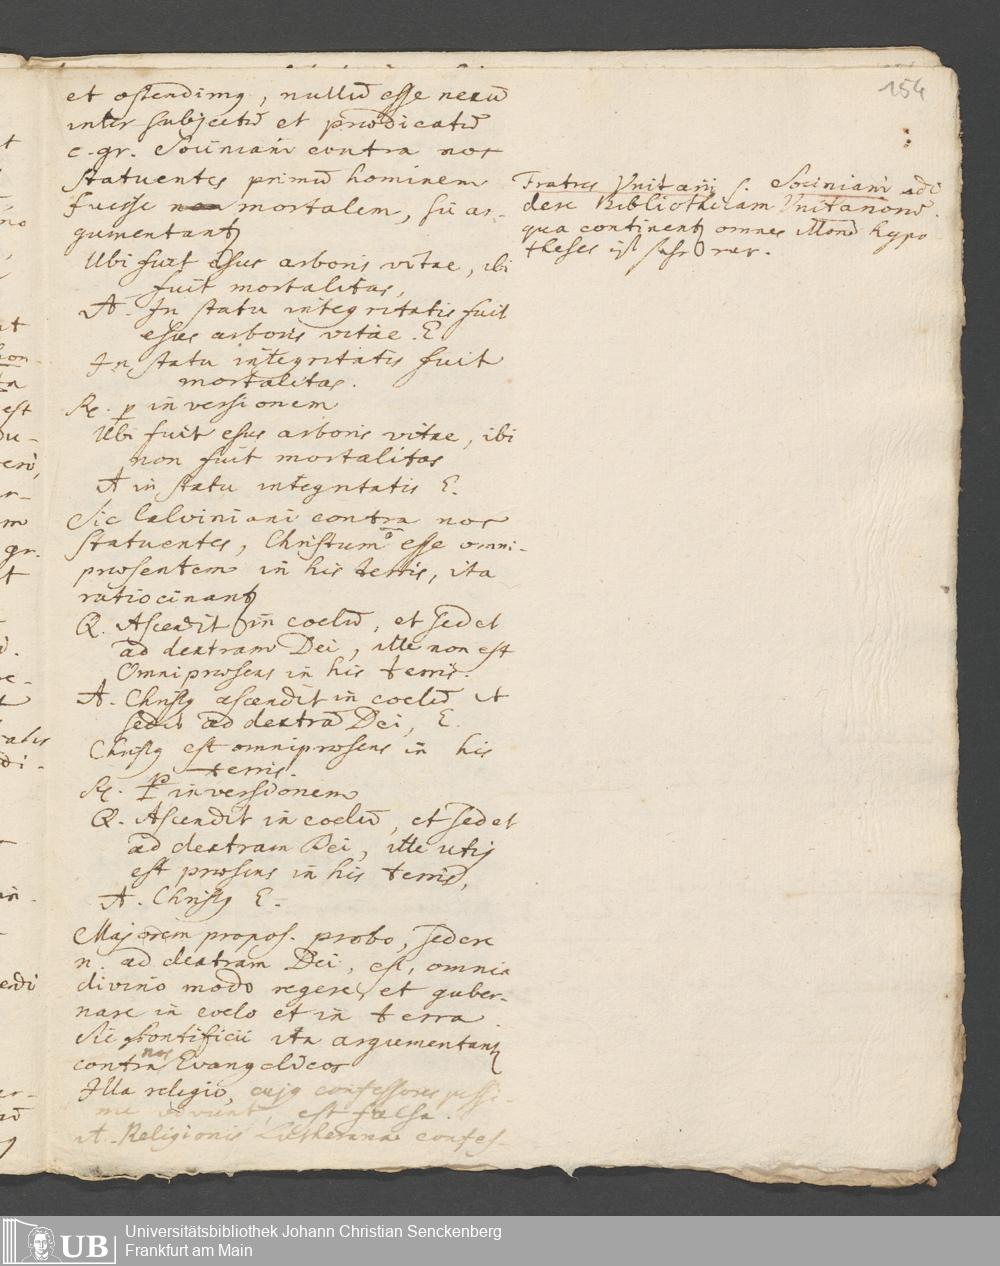 154
et ostendimg, nullū esse nexū
inter subjectū et praedicatū
e. gr. Sociniani contra nos
statuentes primū hominem
fuisse mortalem, sic ar-
gumentant
Ubi fuit esus arboris vitae, ibi
fuit mortalitas,
A. In statu integritatis fuit
esus arboris vitae. E
In statu integritatis fuit
mortalitas.
Rx. p inversionem
Ubi fuit esus arboris vitae, ibi
non fuit mortalitas
A in statu integritatis E.
Sic Calviniani contra nos
statuentes, Christum esse omni-
praesentem in his terris, ita
ratiocinant
Q. Ascendit in coelū, et sedet
ad dextram Dei, ille non est
Omnipraesens in his terris.
A. Christg ascendit in coelū et
sedit ad dextrā Dei, E.
Christg est omnipraesens in his
terris.
Rx. P inversionem
Q. Ascendit in coelū, et sedet
ad dextram Dei, ille utiq
est praesens in his terris,
A. Christg E.
Majorem propos. probo, sedere
n. ad dextram Dei, est, omnia
divino modo regere, et guber-
nare in coelo et in terra.
Sic Pontificii ita argumentant
contra nos Evangelicos
Illa religio, cujg confessores pessi-
me vivunt, est falsa.
A. Religionis Lutherana confes-
Fratres Unitarii s. Sociniani
dere Bibliothecam Unitariorū.
qua continent omnes illorū hypo
theses
Universitätsbibliothek Johann Christian Senckenberg
UB Frankfurt am Main